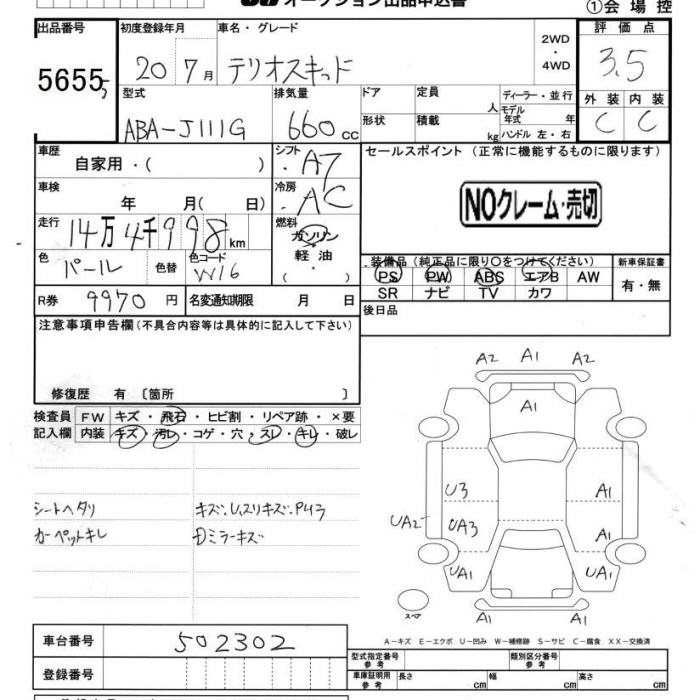 オークション出品申込書
①会場控
出品番号 初度登録年月 車名・グレード 2WD ・ 4WD 評価点
5655 20 7月 テリオスキッド 3.5
型式 排気量 ドア 定員 人 ディーラー・並行 外装 内装
ABA-J111G 660cc 形状 積載 kg モデル年式 年 C C
ハンドル 左・右
車歴 自家用・( ) シフト A7 セールスポイント (正常に機能するものに限ります)
車検 年 月( 日) 冷房 AC NOクレーム・売切
走行 14万4千998km 燃料 ガソリン・軽油・( )
色 パール 色替 色コード W16 装備品 (純正品に限り○をつけてください) 新車保証書
PS PW ABS エアB AW 有・無
SR ナビ TV カワ
R券 9970円 名変通知期限 月 日 後日品
注意事項申告欄(不具合内容等は具体的に記入して下さい)
修復歴 有 〔箇所 〕
検査員 FW キズ・飛石・ヒビ割・リペア跡・×要
記入欄 内装 キズ・汚レ・コゲ・穴・スレ・キレ・破レ
A2 A1 A2
A1
U3 A1
シートヘタリ キズ、
カーペットキレ ミラーキズ
UA2 UA3 A1
UA1 UA1
スペア
A1 A1
A-キズ E-エクボ U-凹み W-補修跡 S-サビ C-腐食 XX-交換済
車台番号 502302
型式指定番号 参考 類別区分番号 参考
登録番号
車庫証明用 参考 長さ cm 幅 cm 高さ cm